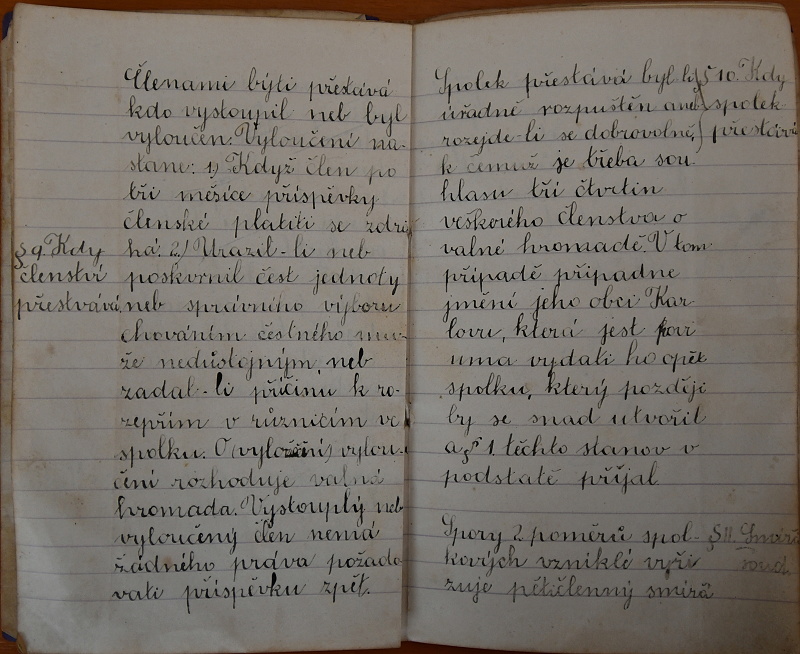 Členami býti přestává
kdo vystoupil neb byl
vyloučen. Vyloučení na-
stane: 1) Když člen po
tři měsíce příspěvky
členské platiti se zdrá
§ 9. Kdy
členství
přestvává
há. 2.) Urazil-li neb
poskvrnil čest jednoty
neb správního výboru
chováním čestného mu-
že nedůstojným, neb
zadal-li příčinu k ro-
zepřím v různicím ve
spolku. O (vyloučení) vylou-
čení rozhoduje valná
hromada. Vystouplý neb
vyloučený člen nemá
žádného práva požado
vati příspěvku zpět.
Spolek přestává byl li
úřadně rozpuštěn aneb
rozejde-li se dobrovolně,
§ 10. Kdy
spolek
přestává
k čemuž je třeba sou
hlasu tří čtvrtin
veškerého členstva o
valné hromadě. V tom
případě připadne
jmění jeho obci Kar
lovu, která jest povi
uma vydati ho opět
spolku, který později
by se snad utvořil
a § 1. těchto stanov v
podstatě přijal
Spory z poměrů spol-
kových vzniklé vyři
zuje pětičlenný smírá
§ 11. Smírčí
soud